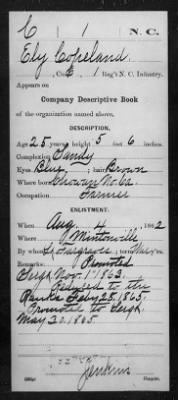 C 1 N. C.
Ely Copeland
, Co. C, 1 Reg't N. C. Infantry.
Appears on
Company Descriptive Book
of the organization named above.
DESCRIPTION.
Age 25 years; height 5 feet 6 inches.
Complexion Sandy
Eyes Blue; hair Brown
Where born Chowan Co.
Occupation Farmer
ENLISTMENT.
When Aug. 4, 1862
Where Mintonville
By whom term yrs.
Remarks: Promoted
Sergt Nov. 1" 1862.
Reduced to the
Ranks Feby 25. 1863.
Promoted to Sergt.
May 20. 1865.
Jenkins
Copyist.